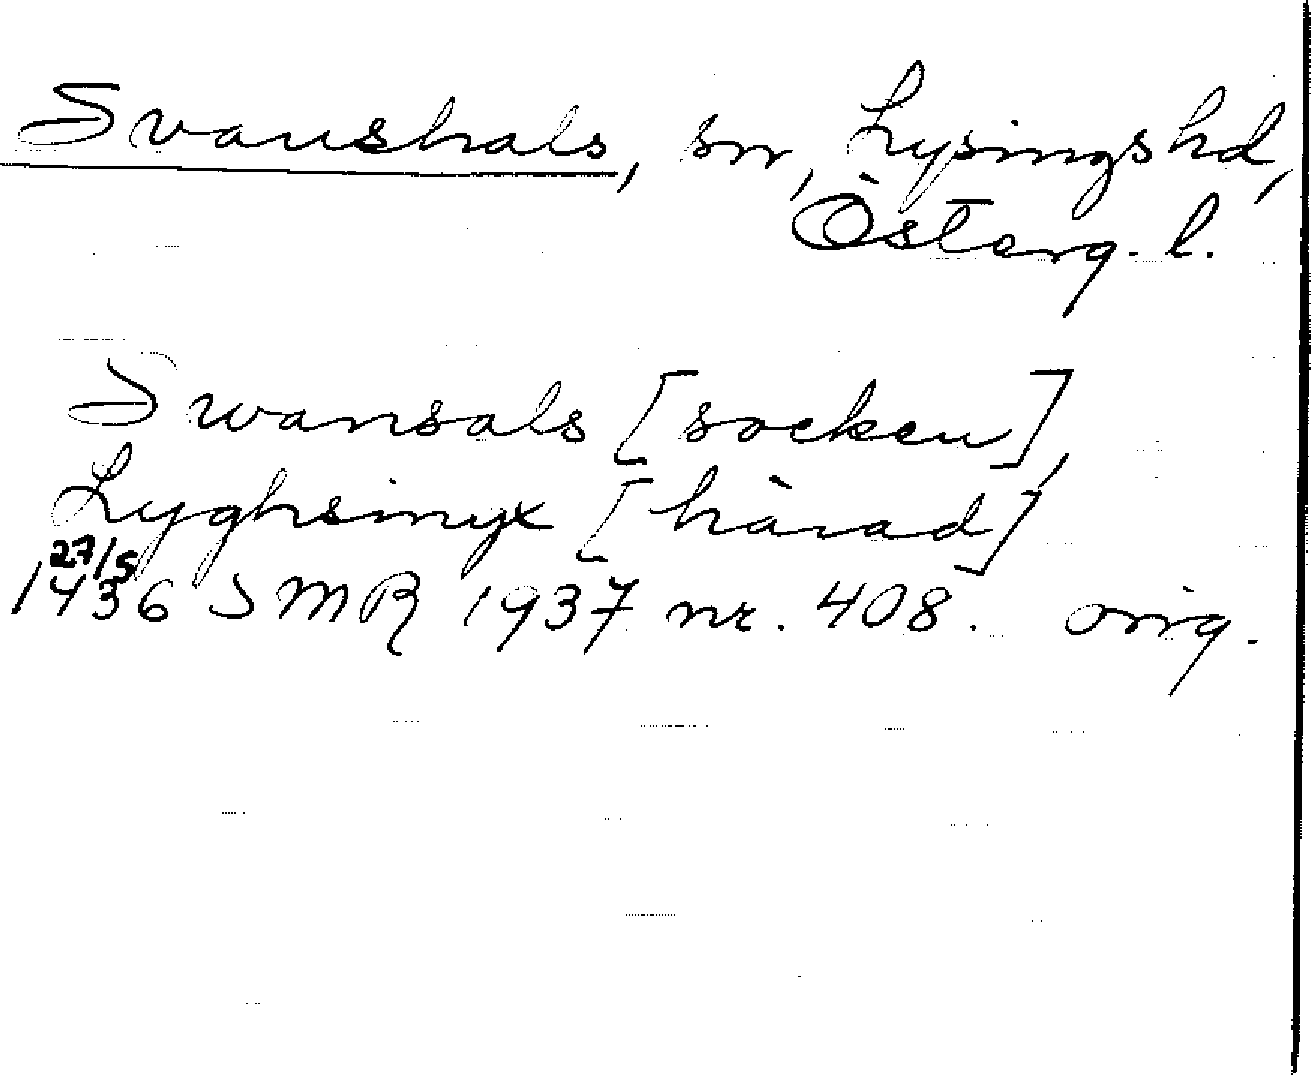 Svanshals, sn, Lysings hd,
Österg. l.
Swansals [socken],
Lyghsingx [härad]
27/5
1436 SMR 1937 nr. 408. orig.